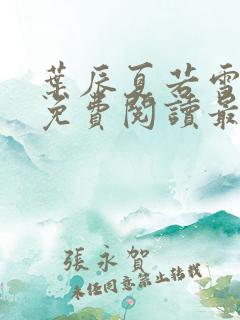 葉辰夏若雪
免費閱讀最
張永賀
未經同意禁止轉載